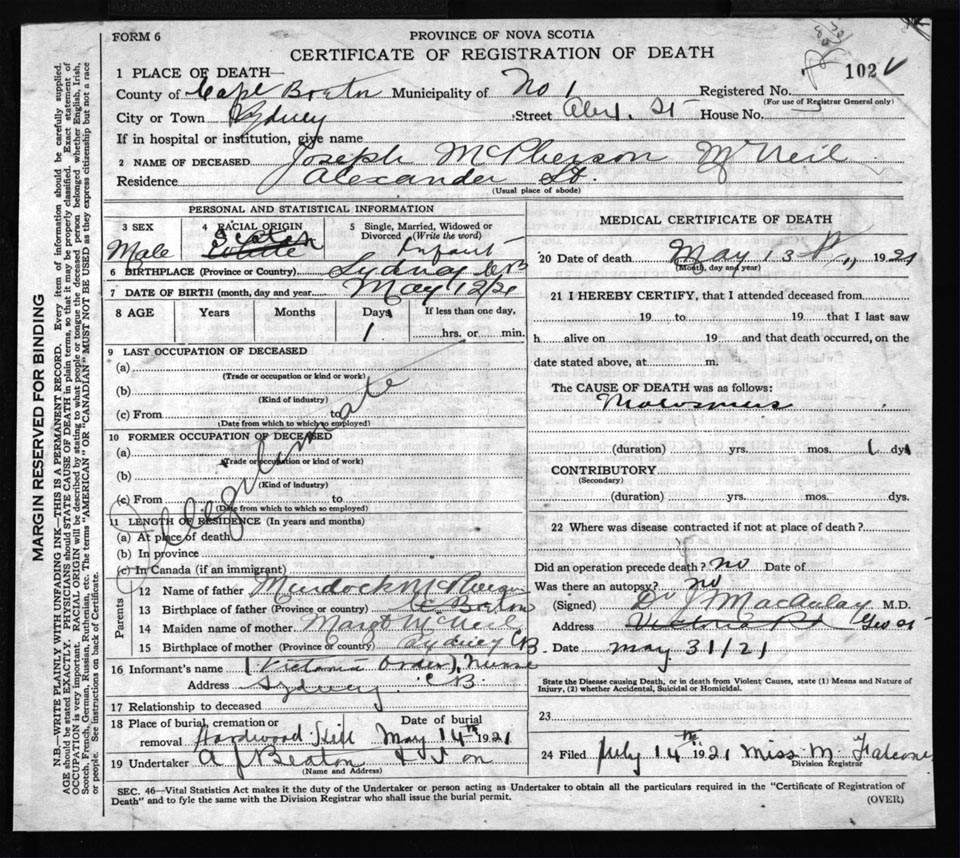 FORM 6
PROVINCE OF NOVA SCOTIA
CERTIFICATE OF REGISTRATION OF DEATH
102
1 PLACE OF DEATH—
County of Cape Breton Municipality of No 1 Registered No.
(For use of Registrar General only)
City or Town Sydney Street Alex. St House No.
If in hospital or institution, give name
2 NAME OF DECEASED Joseph McPherson McNeil
Residence Alexander St.
(Usual place of abode)
PERSONAL AND STATISTICAL INFORMATION
3 SEX
Male
4 RACIAL ORIGIN
Scotch
White
5 Single, Married, Widowed or Divorced (Write the word)
Infant
6 BIRTHPLACE (Province or Country) Sydney CB
7 DATE OF BIRTH (month, day and year) May 12/21
8 AGE Years Months Days If less than one day,
1 hrs. or min.
9 LAST OCCUPATION OF DECEASED
(a)
(Trade or occupation or kind or work)
(b)
(Kind of industry)
(c) From to
(Date from which to which so employed)
10 FORMER OCCUPATION OF DECEASED
(a)
(Trade or occupation or kind of work)
(b)
(Kind of industry)
(c) From to
(Date from which to which so employed)
Illegitimate
11 LENGTH OF RESIDENCE (In years and months)
(a) At place of death
(b) In province
(c) In Canada (if an immigrant)
Parents
12 Name of father Murdock McPherson
13 Birthplace of father (Province or country) C. Breton
14 Maiden name of mother Margt McNeil
15 Birthplace of mother (Province or country) Sydney CB
16 Informant's name (Victoria Order) Nurse
Address Sydney CB
17 Relationship to deceased
18 Place of burial, cremation or removal Hardwood Hill Date of burial May 14th 1921
19 Undertaker A J Beaton & Son
(Name and Address)
MEDICAL CERTIFICATE OF DEATH
20 Date of death May 13th 1921
(Month, day and year)
21 I HEREBY CERTIFY, that I attended deceased from
19 to 19 that I last saw
h alive on 19 and that death occurred, on the
date stated above, at m.
The CAUSE OF DEATH was as follows:
(duration) yrs. mos. 1 dys
CONTRIBUTORY
(Secondary)
(duration) yrs. mos. dys.
22 Where was disease contracted if not at place of death?
Did an operation precede death? no Date of
Was there an autopsy? no
(Signed) Dr J MacAulay M.D.
Address Victoria Rd Geo St
Date May 31/21
State the Disease causing Death, or in death from Violent Causes, state (1) Means and Nature of Injury, (2) whether Accidental, Suicidal or Homicidal.
23
24 Filed July 14th 1921 Miss M
Division Registrar
SEC. 46—Vital Statistics Act makes it the duty of the Undertaker or person acting as Undertaker to obtain all the particulars required in the "Certificate of Registration of
Death" and to fyle the same with the Division Registrar who shall issue the burial permit.
(OVER)
MARGIN RESERVED FOR BINDING
N.B.—WRITE PLAINLY WITH UNFADING INK—THIS IS A PERMANENT RECORD. Every item of information should be carefully supplied.
AGE should be stated EXACTLY. PHYSICIANS should STATE CAUSE OF DEATH in plain terms, so that it may be properly classified. Exact statement of
OCCUPATION is very important. RACIAL ORIGIN will be described by stating to what people or tongue the deceased person belonged whether English, Irish,
Scotch, French, German, Russian, Ruthenian, etc. The terms "AMERICAN" OR "CANADIAN" MUST NOT BE USED as they express citizenship but not a race
or people. See instructions on back of Certificate.